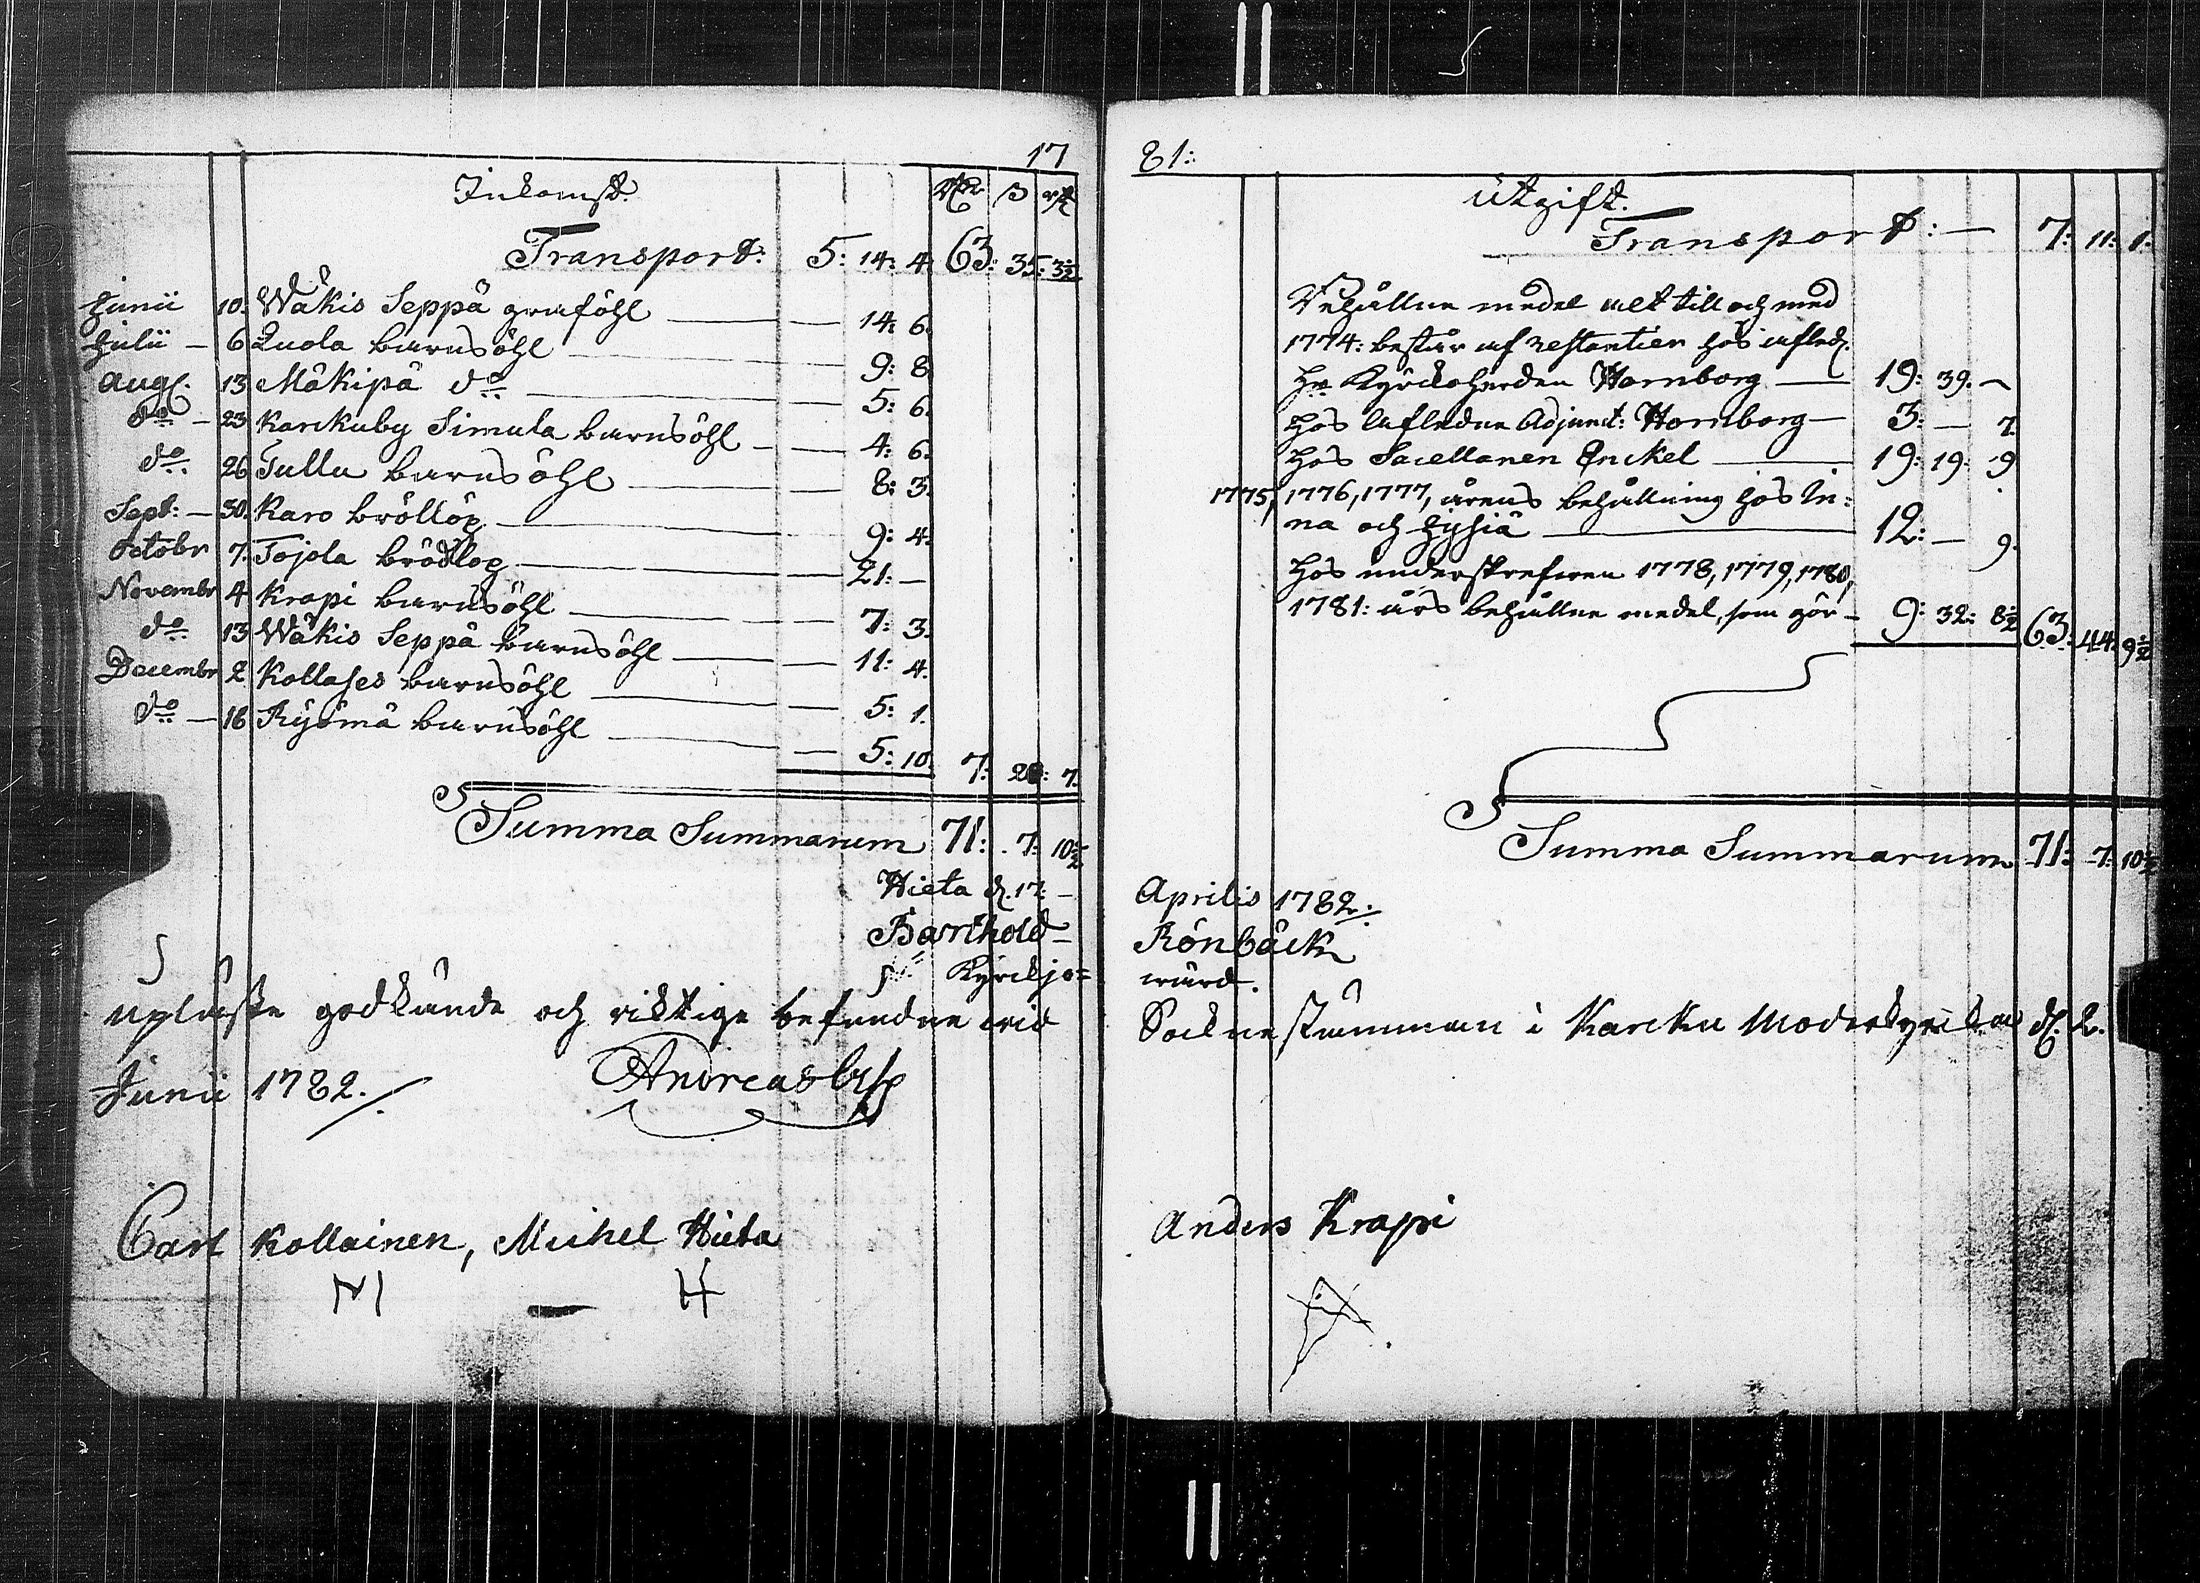 17
Inkomst.
Rdr ß rst
Transport: 5: 14: 4. 63: 35: 3½
Junii 10. Wäkis Seppä graföhl — — 14: 6.
Julii — 6 Quola barnsöhl — — 9: 8.
Aug. 13 Mäkipä do — — 5: 6.
do — 23 Karckuby Simula barnsöhl — — 4: 6.
do 26 Tulla barnsöhl — — 8: 3.
Sept: — 30. Karo bröllop — 9: 4.
Octobr 7. Tojola brödlop — — 21: —
Novembr 4 Krapi barnsöhl — — 7: 3.
do 13 Wäkis Seppä barnsöhl — — 11: 4.
Decembr 2 Kollases barnsöhl — — 5: 1.
do — 16 Ryömä barnsöhl — — 5: 10. 7: 20: 7.
Summa Summarum 71: 7: 10½
Hieta d. 17: —
Barthold —
Kyrckjo=
upläste godkände och riktige befundne wid
Junii 1782.
Andreas
Carl Kollainen, Michel Hieta
81:
Utgift.
Transport: — 7: 11: 1.
Behållne medel alt till och med
1774: består af restantier hos afled.
Hr Kyrckoherden Hornborg — 19: 39. —
hos Afledne Adjunct: Hornborg — 3: — 7.
hos Sacellanen Enckel — 19: 19: 9
1775, 1776, 1777, årens behållning hos In=
na och — 12: — 9.
hos underskrefwen 1778, 1779, 1780,
1781: års behållne medel, som gör — 9: 32: 8½ 63: 44: 9½
Summa Summarum 71: 7: 10½
Aprilis 1782.
Rönbäck
wärd.
Socknestämman i Karcku Moderkyrcka d. 2.
Anders Krapi